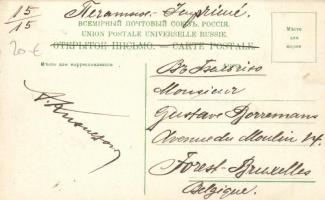 15
15
Печатное. Imprimé.
20 €
ВСЕМІРНЫЙ ПОЧТОВЫЙ СОЮЗЪ. РОССІЯ.
UNION POSTALE UNIVERSELLE RUSSIE.
ОТКРЫТОЕ ПИСЬМО. — CARTE POSTALE.
Мѣсто
для
марки
Мѣсто для корреспонденціи
Въ Бельгію
Monsieur
Gustave Borremans
Avenue du Moulin 24.
Forest-Bruxelles
Belgique.